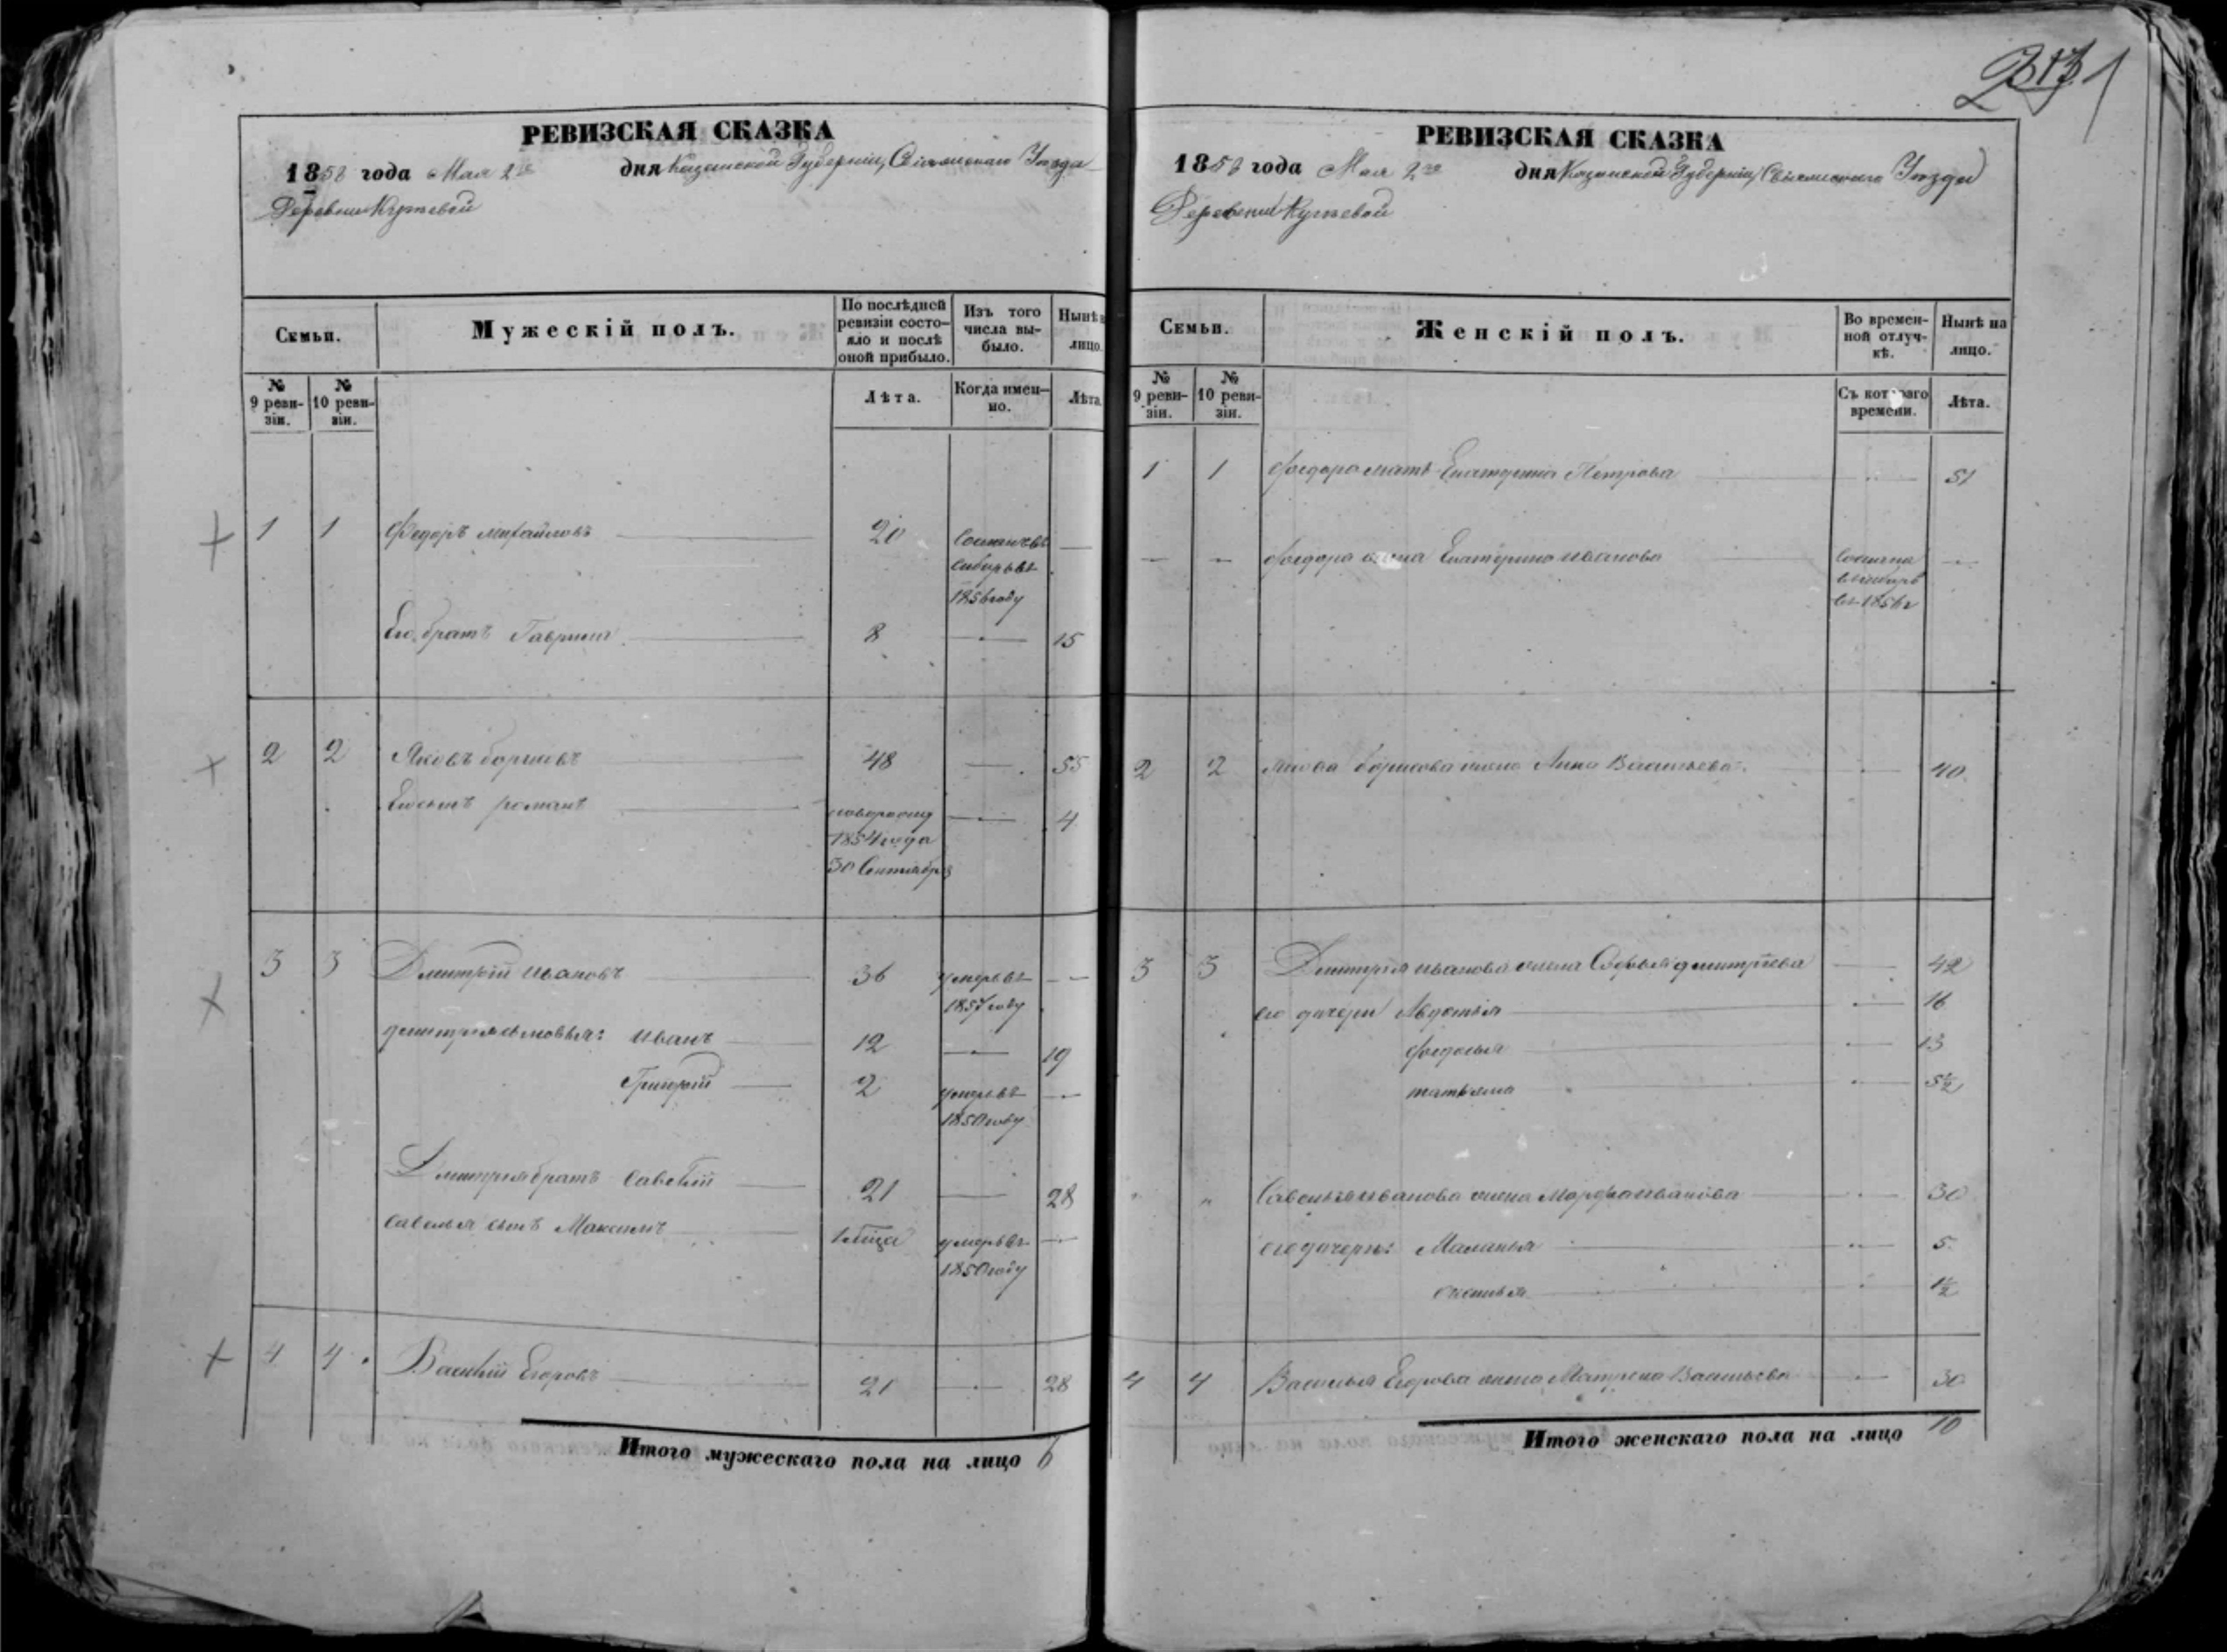 РЕВИЗСКАЯ СКАЗКА
1858 года Мая 2го дня Казанской Губерніи, Свіяжскаго Уезда
Деревни
Семьи.
Мужескій полъ.
По послѣдней ревизіи состо-
яло и послѣ
оной прибыло.
Изъ того
числа вы-
было.
Нынѣ н
лицо.
№
9 реви-
зіи.
№
10 реви-
зіи.
Лѣта.
Когда имен-
но.
Лѣта.
1 1 Федоръ Михайловъ 20
Сосланъ въ
Сибирь въ
1856 году
Его братъ Гаврила 8 15
2 2 Яковъ Борисовъ 48 55
Его сынъ Романъ 4
1854 года
30 Сентября
3 3 Дмитрій Ивановъ 36 умеръ въ
1857 году
Дмитрія сыновья: Иванъ 12 19
Григорій 2 умеръ въ
1850 году
Дмитрія братъ Савелій 21 28
Савелья сынъ Максимъ умеръ въ
1850 году
4 4 Василій Егоровъ 21 28
Итого мужескаго пола на лицо 6
РЕВИЗСКАЯ СКАЗКА
1858 года Мая 2го дня Казанской Губерніи, Свіяжскаго Уезда
Деревни
Семьи.
Женскій полъ.
Во времен-
ной отлуч-
кѣ.
Нынѣ на
лицо.
№
9 реви-
зіи.
№
10 реви-
зіи.
Съ котораго
времени.
Лѣта.
1 1 Федора мать Екатерина Петрова 51
Федора жена Екатерина Иванова
Сослана
въ Сибирь
въ 1856 г
2 2 Якова Борисова жена Анна Васильева 40
3 3 Дмитрія Иванова жена Софья Дмитріева 42
его дочери Авдотья 16
Федосья 13
Татьяна 5½
" " Савелья Иванова жена Марфа Иванова 30
его дочери: Маланья 5
1½
4 4 Василья Егорова жена Матрена Васильева 30
Итого женскаго пола на лицо 10